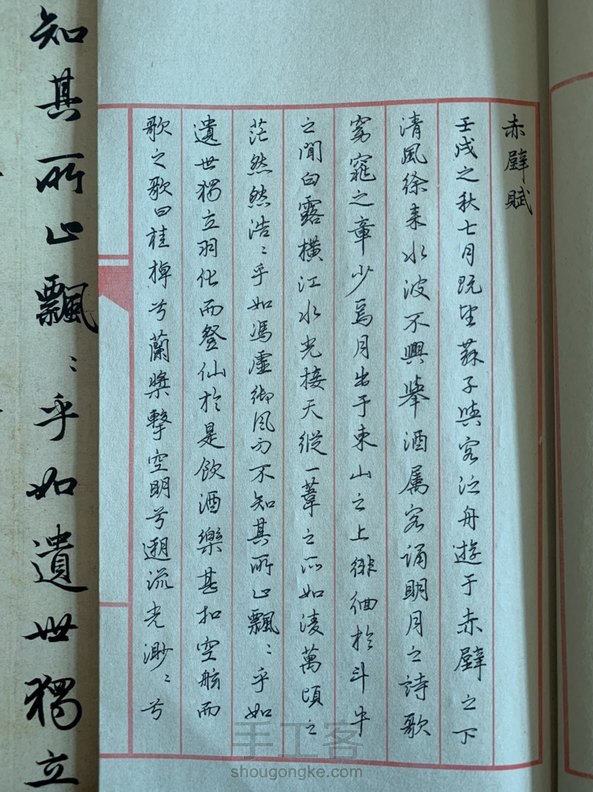 赤壁賦
壬戌之秋七月既望蘇子與客泛舟遊于赤壁之下
清風徐来水波不興舉酒属客誦明月之詩歌
窈窕之章少焉月出于東山之上徘徊於斗牛
之間白露横江水光接天縱一葦之所如凌萬頃之
茫然然浩〻乎如馮虛御风而不知其所止飄〻乎如
遺世獨立羽化而登仙於是飲酒樂甚扣空舷而
歌之歌曰桂棹兮蘭槳擊空明兮遡流光渺〻兮
知其所止飄〻乎如遺世獨立
手工客
shougongke.com